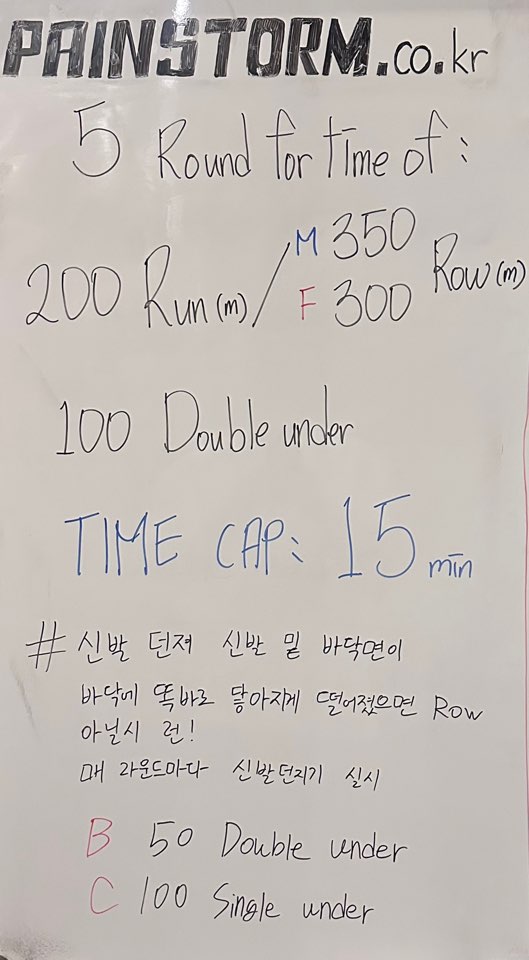 PAINSTORM.co.kr
5 Round for time of :
200 Run (m) / M 350 Row (m)
F 300
100 Double under
TIME CAP: 15 min
# 신발 던져 신발 밑 바닥면이
바닥에 똑바로 닿아지게 떨어졌으면 Row
아닐시 런!
매 라운드마다 신발던지기 실시
B 50 Double under
C 100 Single under